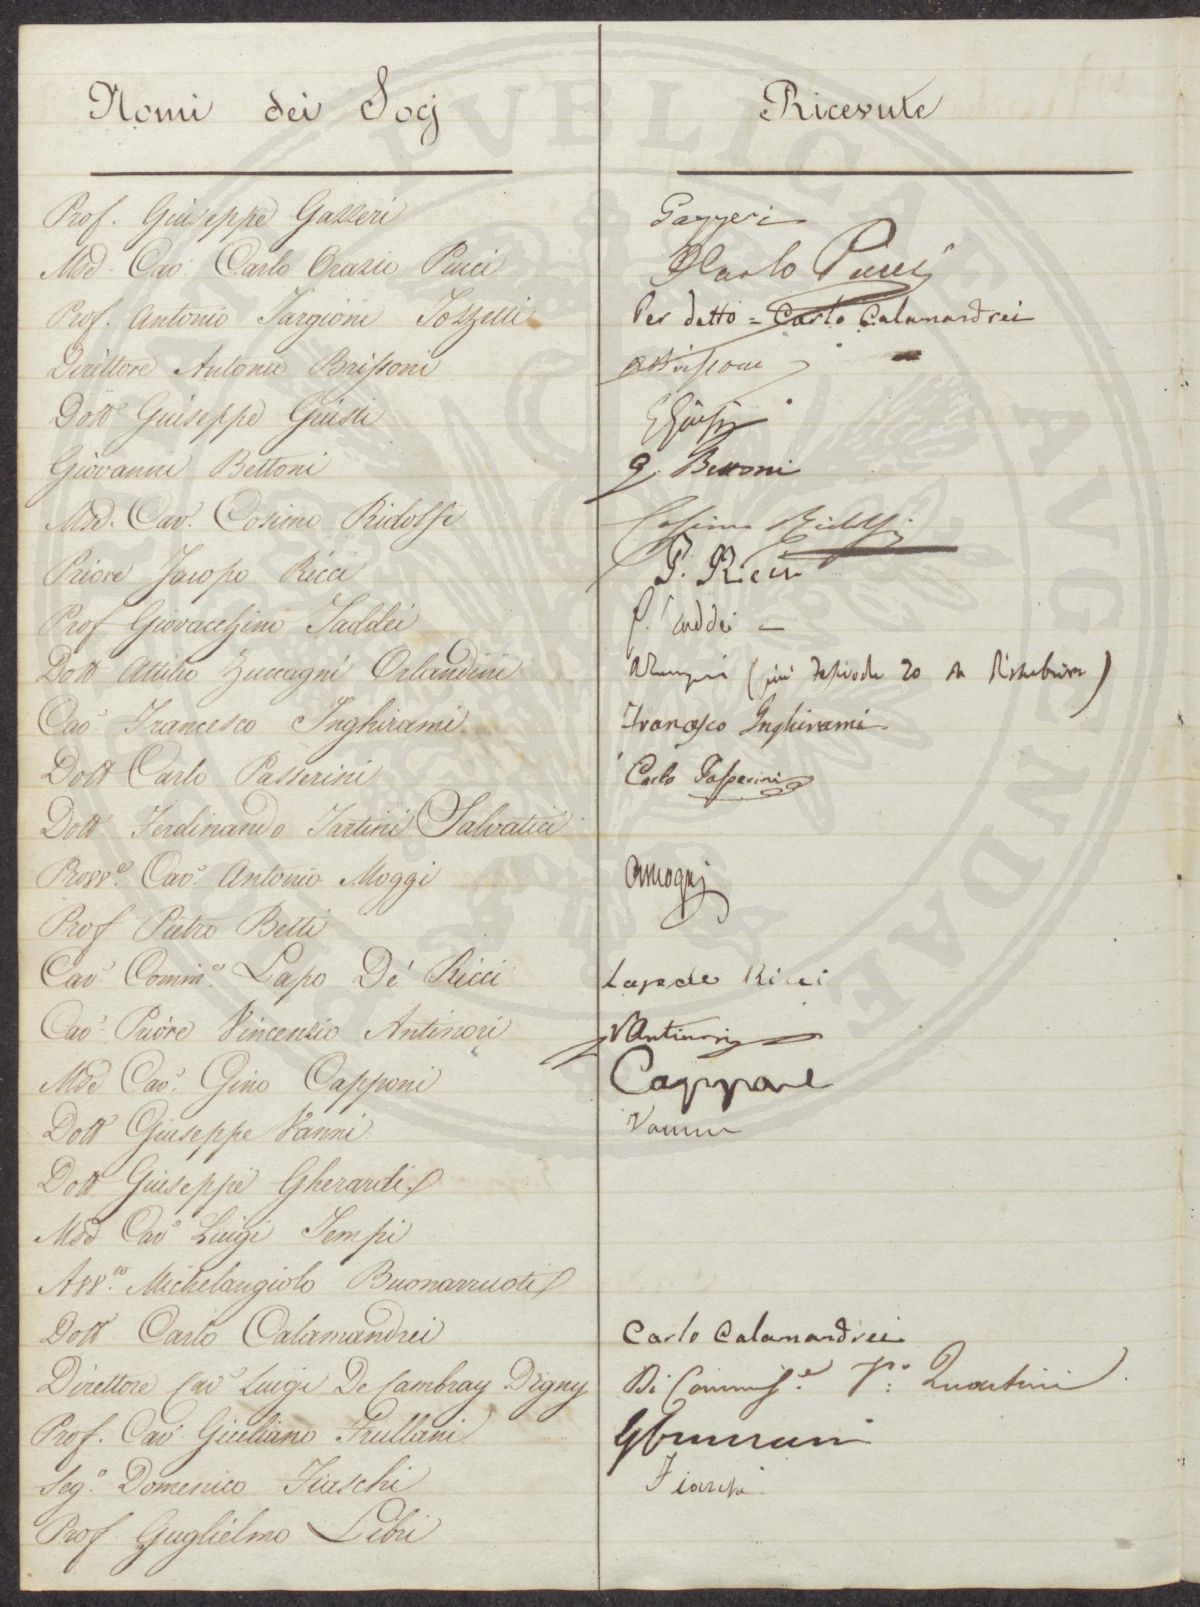 Nomi dei Socj Ricevute
Prof. Giuseppe Gazzeri Gazzeri
Msē. Cavͤ. Carlo Orazio Pucci Carlo Pucci
Prof. Antonio Targioni Tozzetti Per detto = Carlo Calamandrei
Direttore Antonio Brissoni ABrissoni
Dottͤ Giuseppe Giusti GGiusti
Giovanni Bettoni G. Bettoni
Msē. Cav. Cosimo Ridolfi Cosimo Ridolfi
Priore Jacopo Ricci P. Ricci
Prof Giovacchino Taddei G. Taddei
Dott Attilio Zuccagni Orlandini 20 da distribuire)
Cavͤ Francesco Inghirami Francesco Inghirami
Dott Carlo Passerini Carlo Passerini
Dott Ferdinando Tartini Salvatici
Provvͤ. Cavͤ Antonio Moggi AMoggi
Prof Pietro Betti
Cavͤ Commͤ. Lapo De' Ricci Lapo de Ricci
Cavͤ Priore Vincenzio Antinori VAntinori
Msē Cavͤ. Gino Capponi Capponi
Dott Giuseppe Vanni Vanni
Dott Giuseppe Gherardi
Msē Cavͤ Luigi Tempi
Avv.to Michelangiolo Buonarruoti
Dott Carlo Calamandrei Carlo Calamandrei
Direttore Cavͤ Luigi De Cambray Digny Di Commis.e
Prof. Cavͤ Giuliano Frullani GFrullani
Seg.o Domenico Fiaschi Fiaschi
Prof Guglielmo Libri
PUBLICAE AUGENDAE